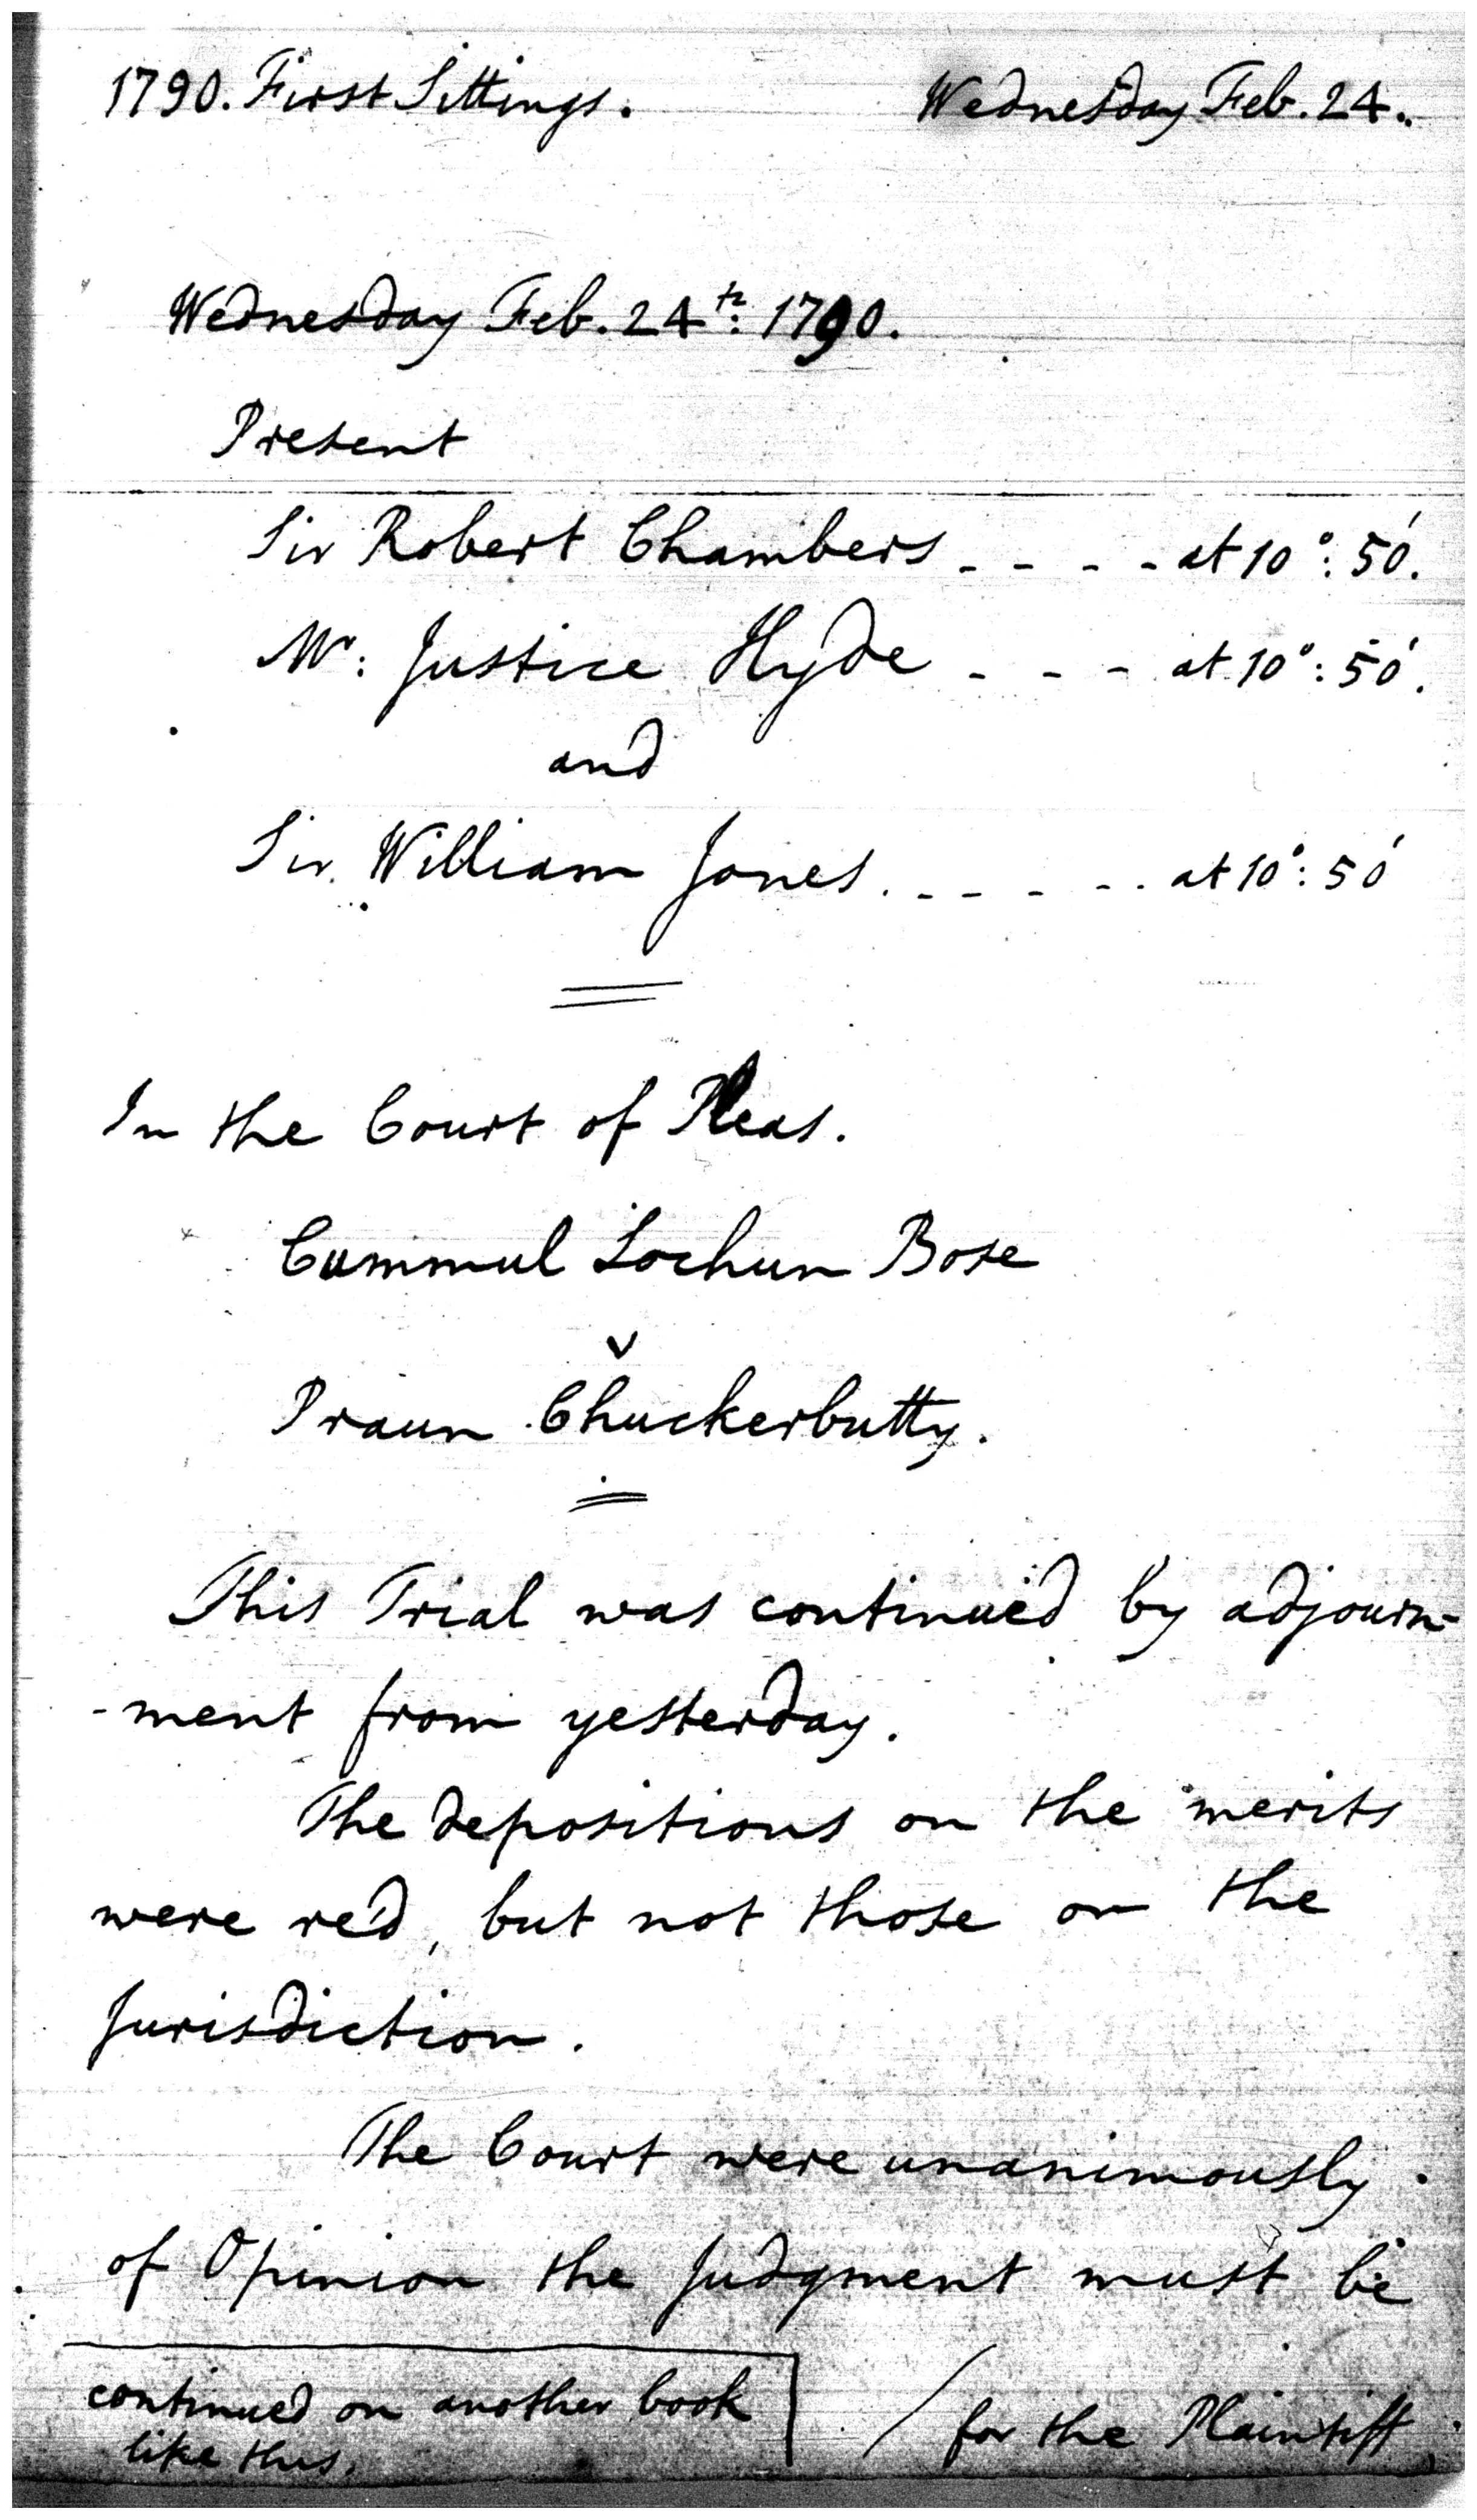 1790. First Sittings. Wednesday Feb. 24.
Wednesday Feb. 24th: 1790.
Present
Sir Robert Chambers - - - - at 10°: 50'.
Mr: Justice Hyde - - - at 10°: 50'.
and
Sir William Jones. - - - - - at 10°: 50'
In the Court of Pleas.
Cummul Lochun Bose
v
Praun Chuckerbutty.
This Trial was continued by adjourn-
-ment from yesterday.
The depositions on the merits
were red, but not those on the
Jurisdiction.
The Court were unanimously
of Opinion the Judgment must be
/ for the Plaintiff
continued on another book
like this.